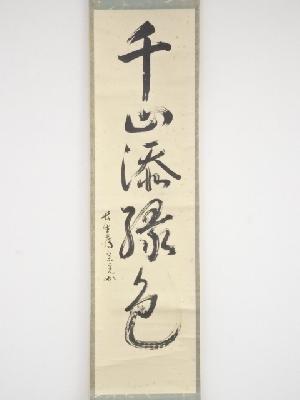 千山添緑色